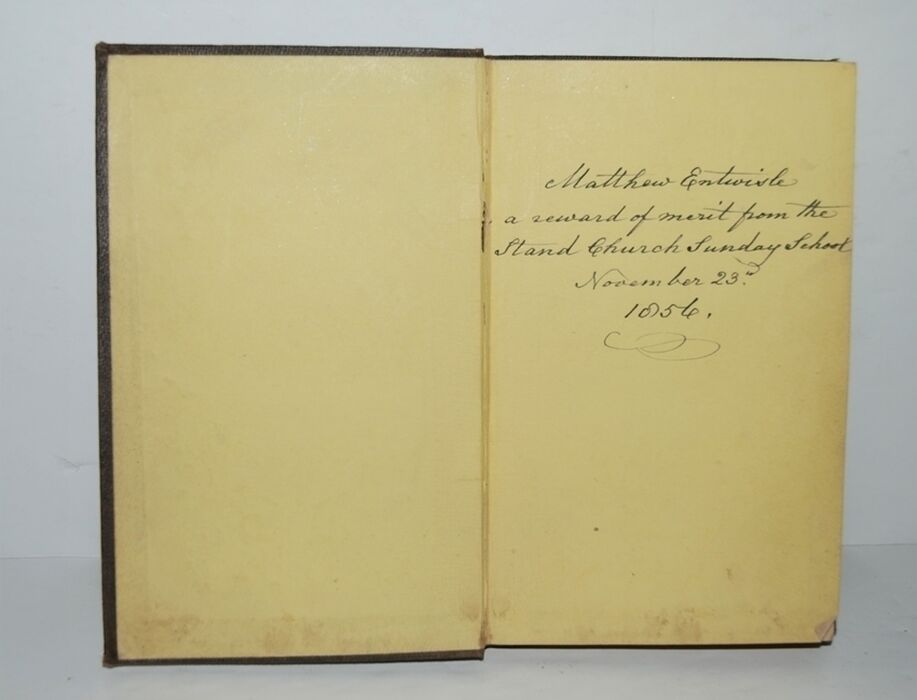 Matthew Entwisle
a reward of merit from the
Stand Church Sunday School
November 23.d
1856.